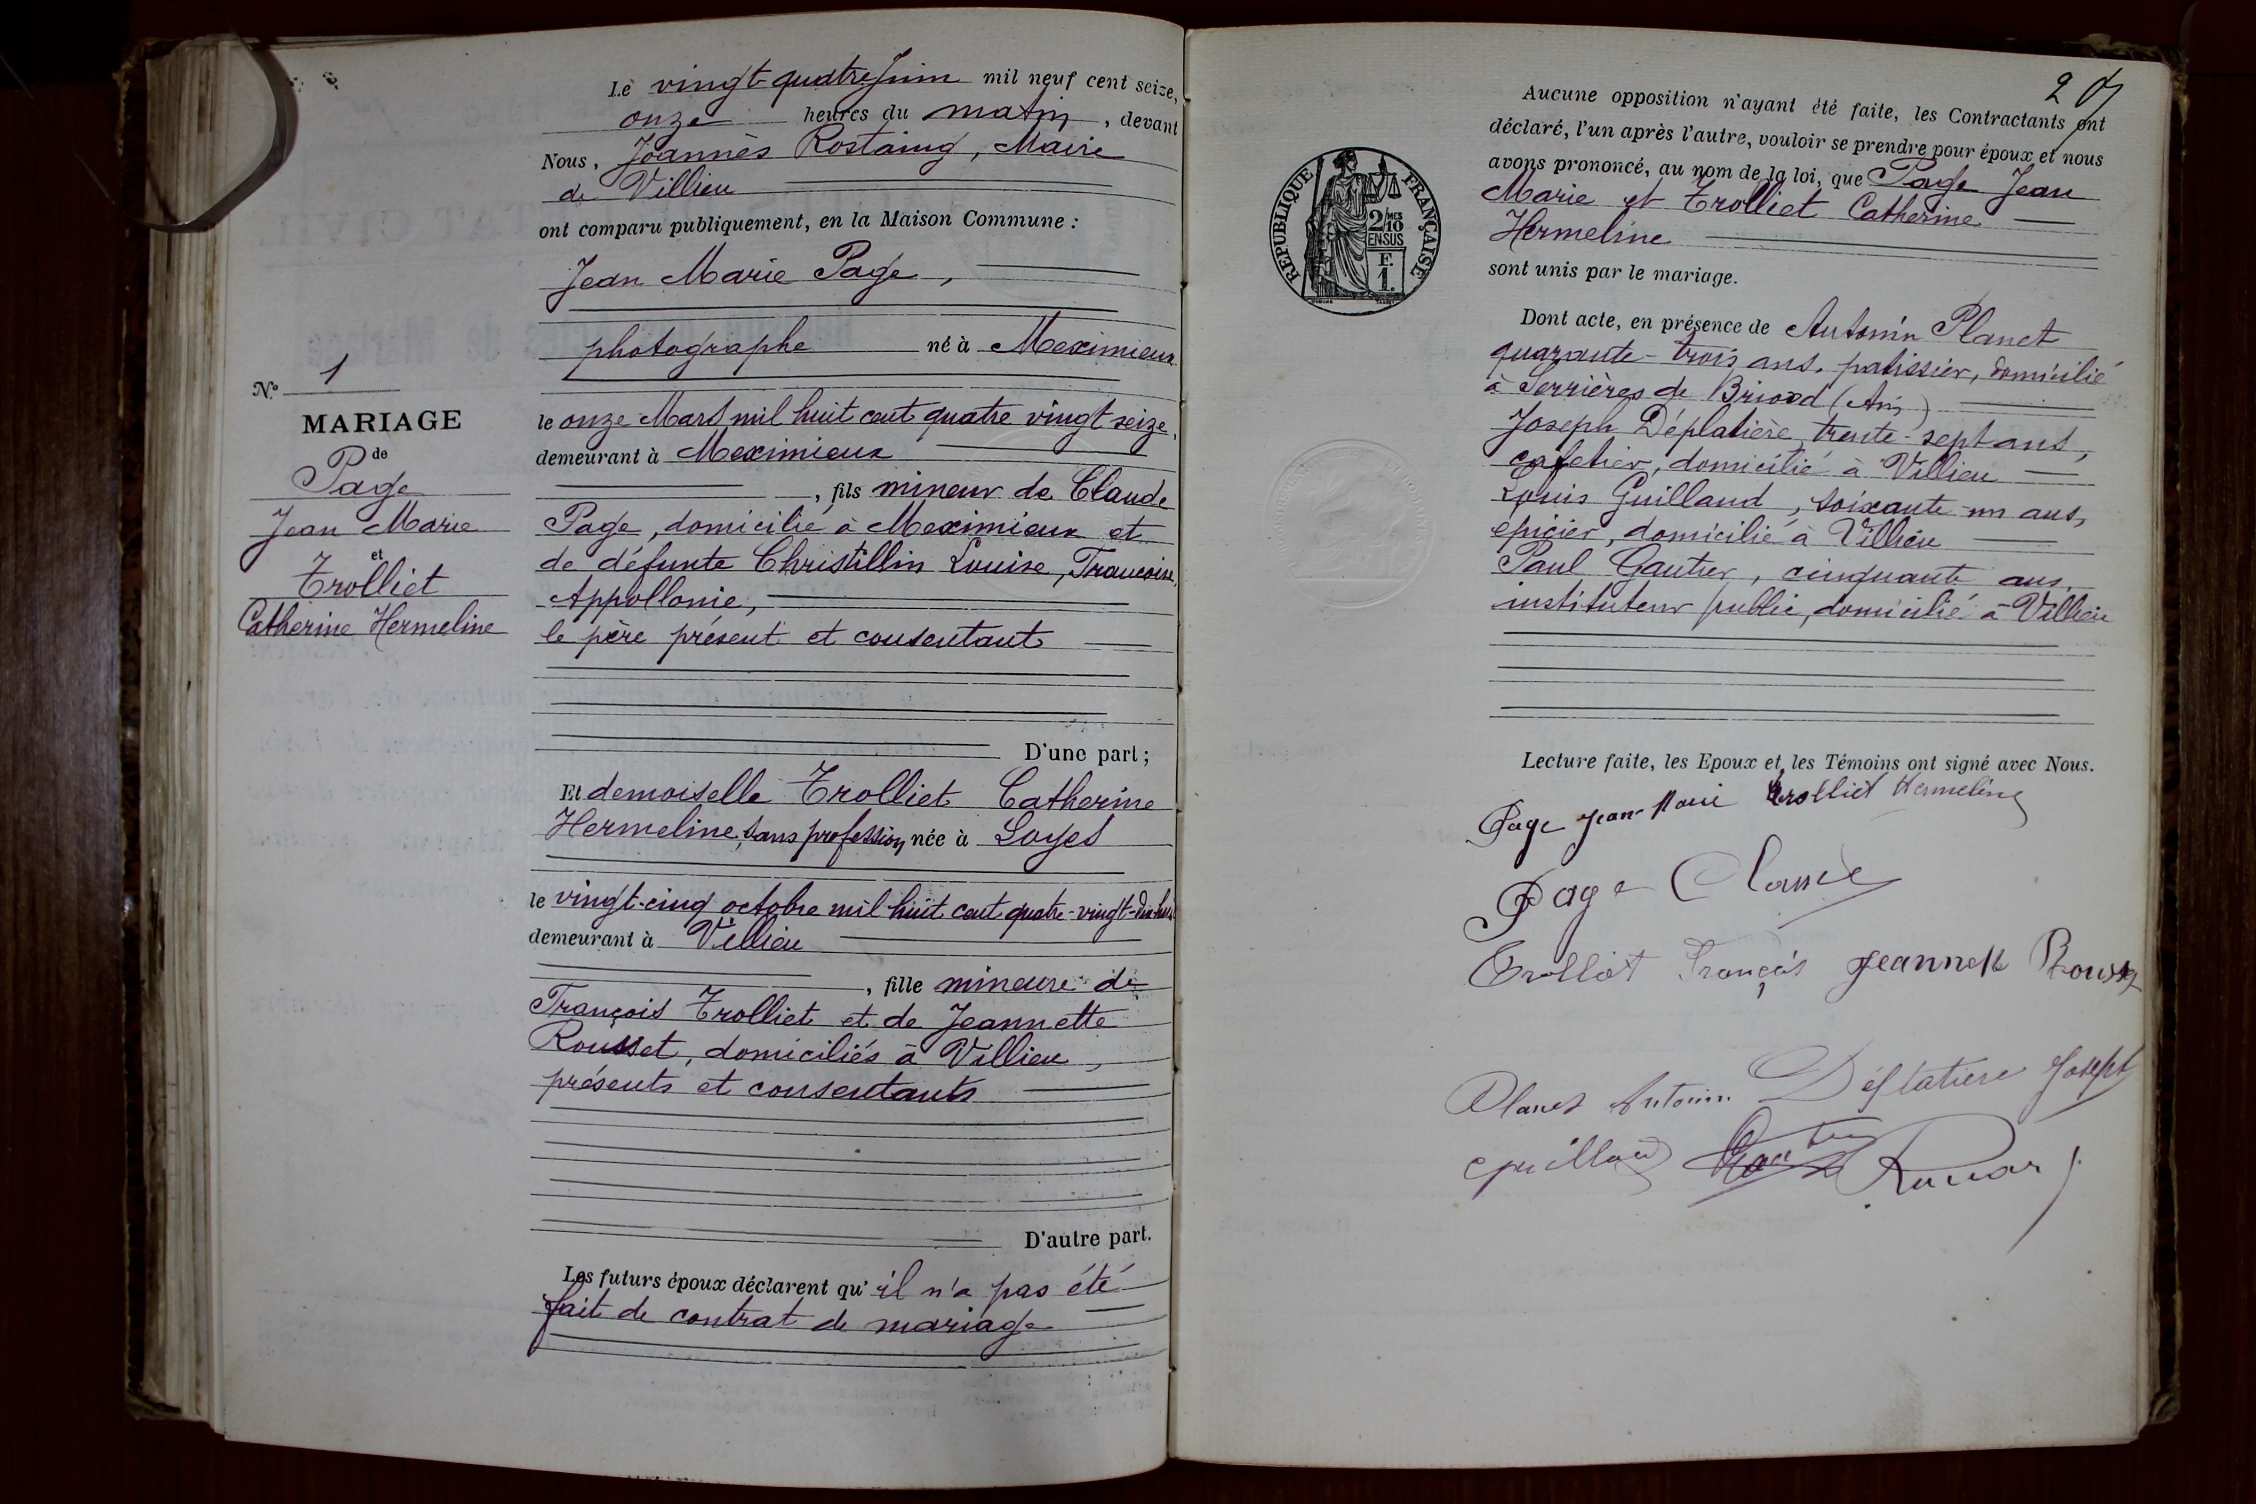 Le vingt-quatre Juin mil neuf cent seize,
onze heures du matin, devant
Nous, Joannès Rostaing, Maire
de Villieu
ont comparu publiquement, en la Maison Commune :
Jean Marie Page,
photographe né à Meximieux
le onze Mars mil huit cent quatre vingt seize,
demeurant à Meximieux
, fils mineur de Claude
Page, domicilié à Meximieux et
de défunte Christillin Louise, Françoise,
Appollonie,
le père présent et consentant
D'une part ;
Et demoiselle Trolliet Catherine
Hermeline, sans profession, née à Loyes
le vingt-cinq octobre mil huit cent quatre-vingt-dix-huit
demeurant à Villieu
, fille mineure de
François Trolliet et de Jeannette
Rousset, domiciliés à Villieu,
présents et consentants
D'autre part.
Les futurs époux déclarent qu'il n'a pas été
fait de contrat de mariage
N° 1
MARIAGE
de
Page
Jean Marie
et
Trolliet
Catherine Hermeline
2
Aucune opposition n'ayant été faite, les Contractants ont
déclaré, l'un après l'autre, vouloir se prendre pour époux et nous
avons prononcé, au nom de la loi, que Page Jean
Marie et Trolliet Catherine
Hermeline
sont unis par le mariage.
Dont acte, en présence de Antonin Planet
quarante-trois ans, patissier, domicilié
à Serrières de Briord (Ain)
Joseph Déplatière, trente-sept ans,
cafetier, domicilié à Villieu
Louis Guilland, soixante-un ans,
épicier, domicilié à Villieu
Paul Gautier, cinquante ans,
instituteur public, domicilié à Villieu
Lecture faite, les Epoux et les Témoins ont signé avec Nous.
Page Jean-Marie Trolliet Hermeline
Page Claude
Trolliet François Jeannette Rousset
Planet Antonin Déplatière Joseph
Guilland Gautier
RÉPUBLIQUE FRANÇAISE
2/10
MES
EN SUS
F.
1.